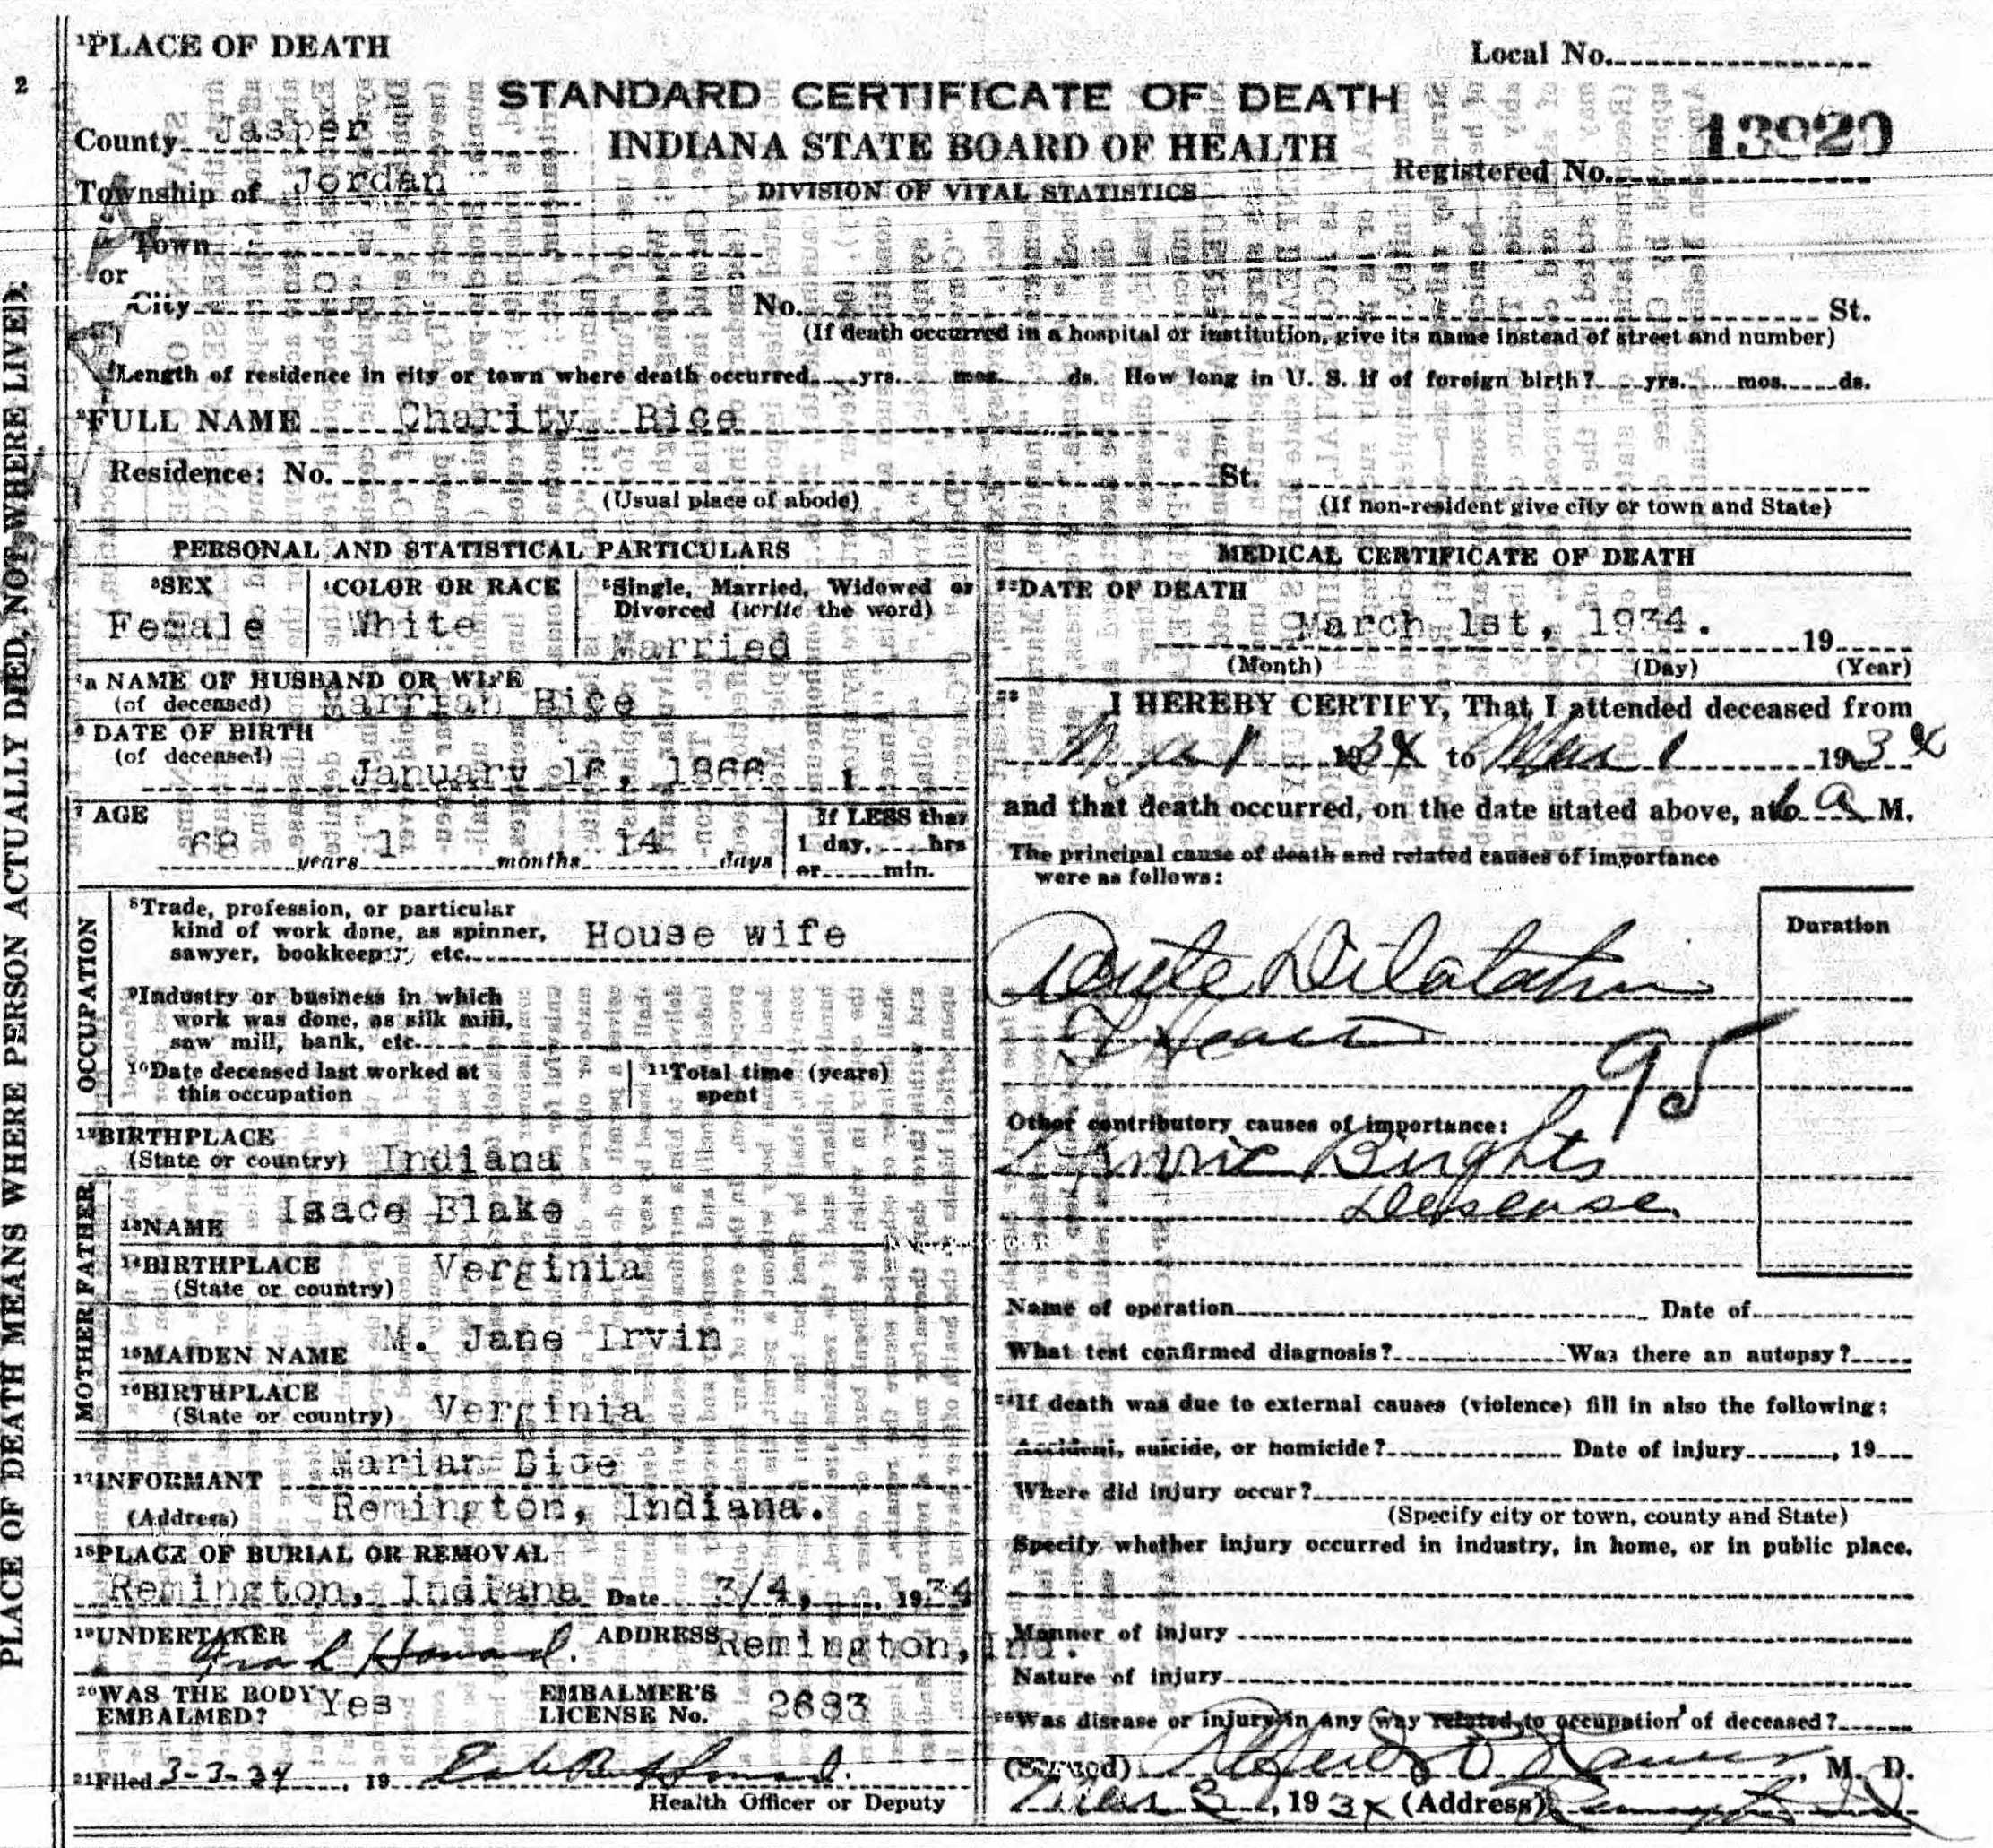 ¹PLACE OF DEATH
Local No.
2
STANDARD CERTIFICATE OF DEATH
County Jasper
INDIANA STATE BOARD OF HEALTH
13920
Registered No.
Township of Jordan
DIVISION OF VITAL STATISTICS
Town
or
City No. St.
(If death occurred in a hospital or institution, give its name instead of street and number)
Length of residence in city or town where death occurred yrs. mos. ds. How long in U. S. if of foreign birth? yrs. mos. ds.
²FULL NAME Charity Bice
Residence: No. St.
(Usual place of abode) (If non-resident give city or town and State)
PLACE OF DEATH MEANS WHERE PERSON ACTUALLY DIED, NOT WHERE LIVE).
PERSONAL AND STATISTICAL PARTICULARS
³SEX
Female
⁴COLOR OR RACE
White
⁵Single, Married, Widowed or
Divorced (write the word)
Married
⁵a NAME OF HUSBAND OR WIFE
(of deceased) Marrian Bice
⁶DATE OF BIRTH
(of deceased)
January 16, 1866
⁷AGE
68 years 1 months 14 days
If LESS than
1 day, hrs
or min.
OCCUPATION
⁸Trade, profession, or particular
kind of work done, as spinner,
sawyer, bookkeeper, etc. House wife
⁹Industry or business in which
work was done, as silk mill,
saw mill, bank, etc
¹⁰Date deceased last worked at
this occupation
¹¹Total time (years)
spent
¹²BIRTHPLACE
(State or country) Indiana
FATHER
¹³NAME Isace Blake
¹⁴BIRTHPLACE
(State or country) Verginia
MOTHER
¹⁵MAIDEN NAME M. Jane Irvin
¹⁶BIRTHPLACE
(State or country) Verginia
¹⁷INFORMANT Marian Bice
(Address) Remington, Indiana.
¹⁸PLACE OF BURIAL OR REMOVAL
Remington, Indiana Date 3/4, 1934
¹⁹UNDERTAKER Howard. ADDRESS Remington, Ind.
²⁰WAS THE BODY
EMBALMED? Yes
EMBALMER'S
LICENSE No. 2683
²¹Filed 3-3-34, 19
Health Officer or Deputy
MEDICAL CERTIFICATE OF DEATH
²²DATE OF DEATH
March 1st, 1934. 19
(Month) (Day) (Year)
²³ I HEREBY CERTIFY, That I attended deceased from
Mar 1 1934 to Mar 1 1934
and that death occurred, on the date stated above, at 6 A M.
The principal cause of death and related causes of importance
were as follows:
Duration
Acute Dilatation
of Heart
95
Other contributory causes of importance:
Chronic Brights
Desease
Name of operation Date of
What test confirmed diagnosis? Was there an autopsy?
²⁴If death was due to external causes (violence) fill in also the following:
Accident, suicide, or homicide? Date of injury, 19
Where did injury occur?
(Specify city or town, county and State)
Specify whether injury occurred in industry, in home, or in public place.
Manner of injury
Nature of injury
²⁵Was disease or injury in any way related to occupation of deceased?
(Signed) , M. D.
Mar 3, 1934 (Address)